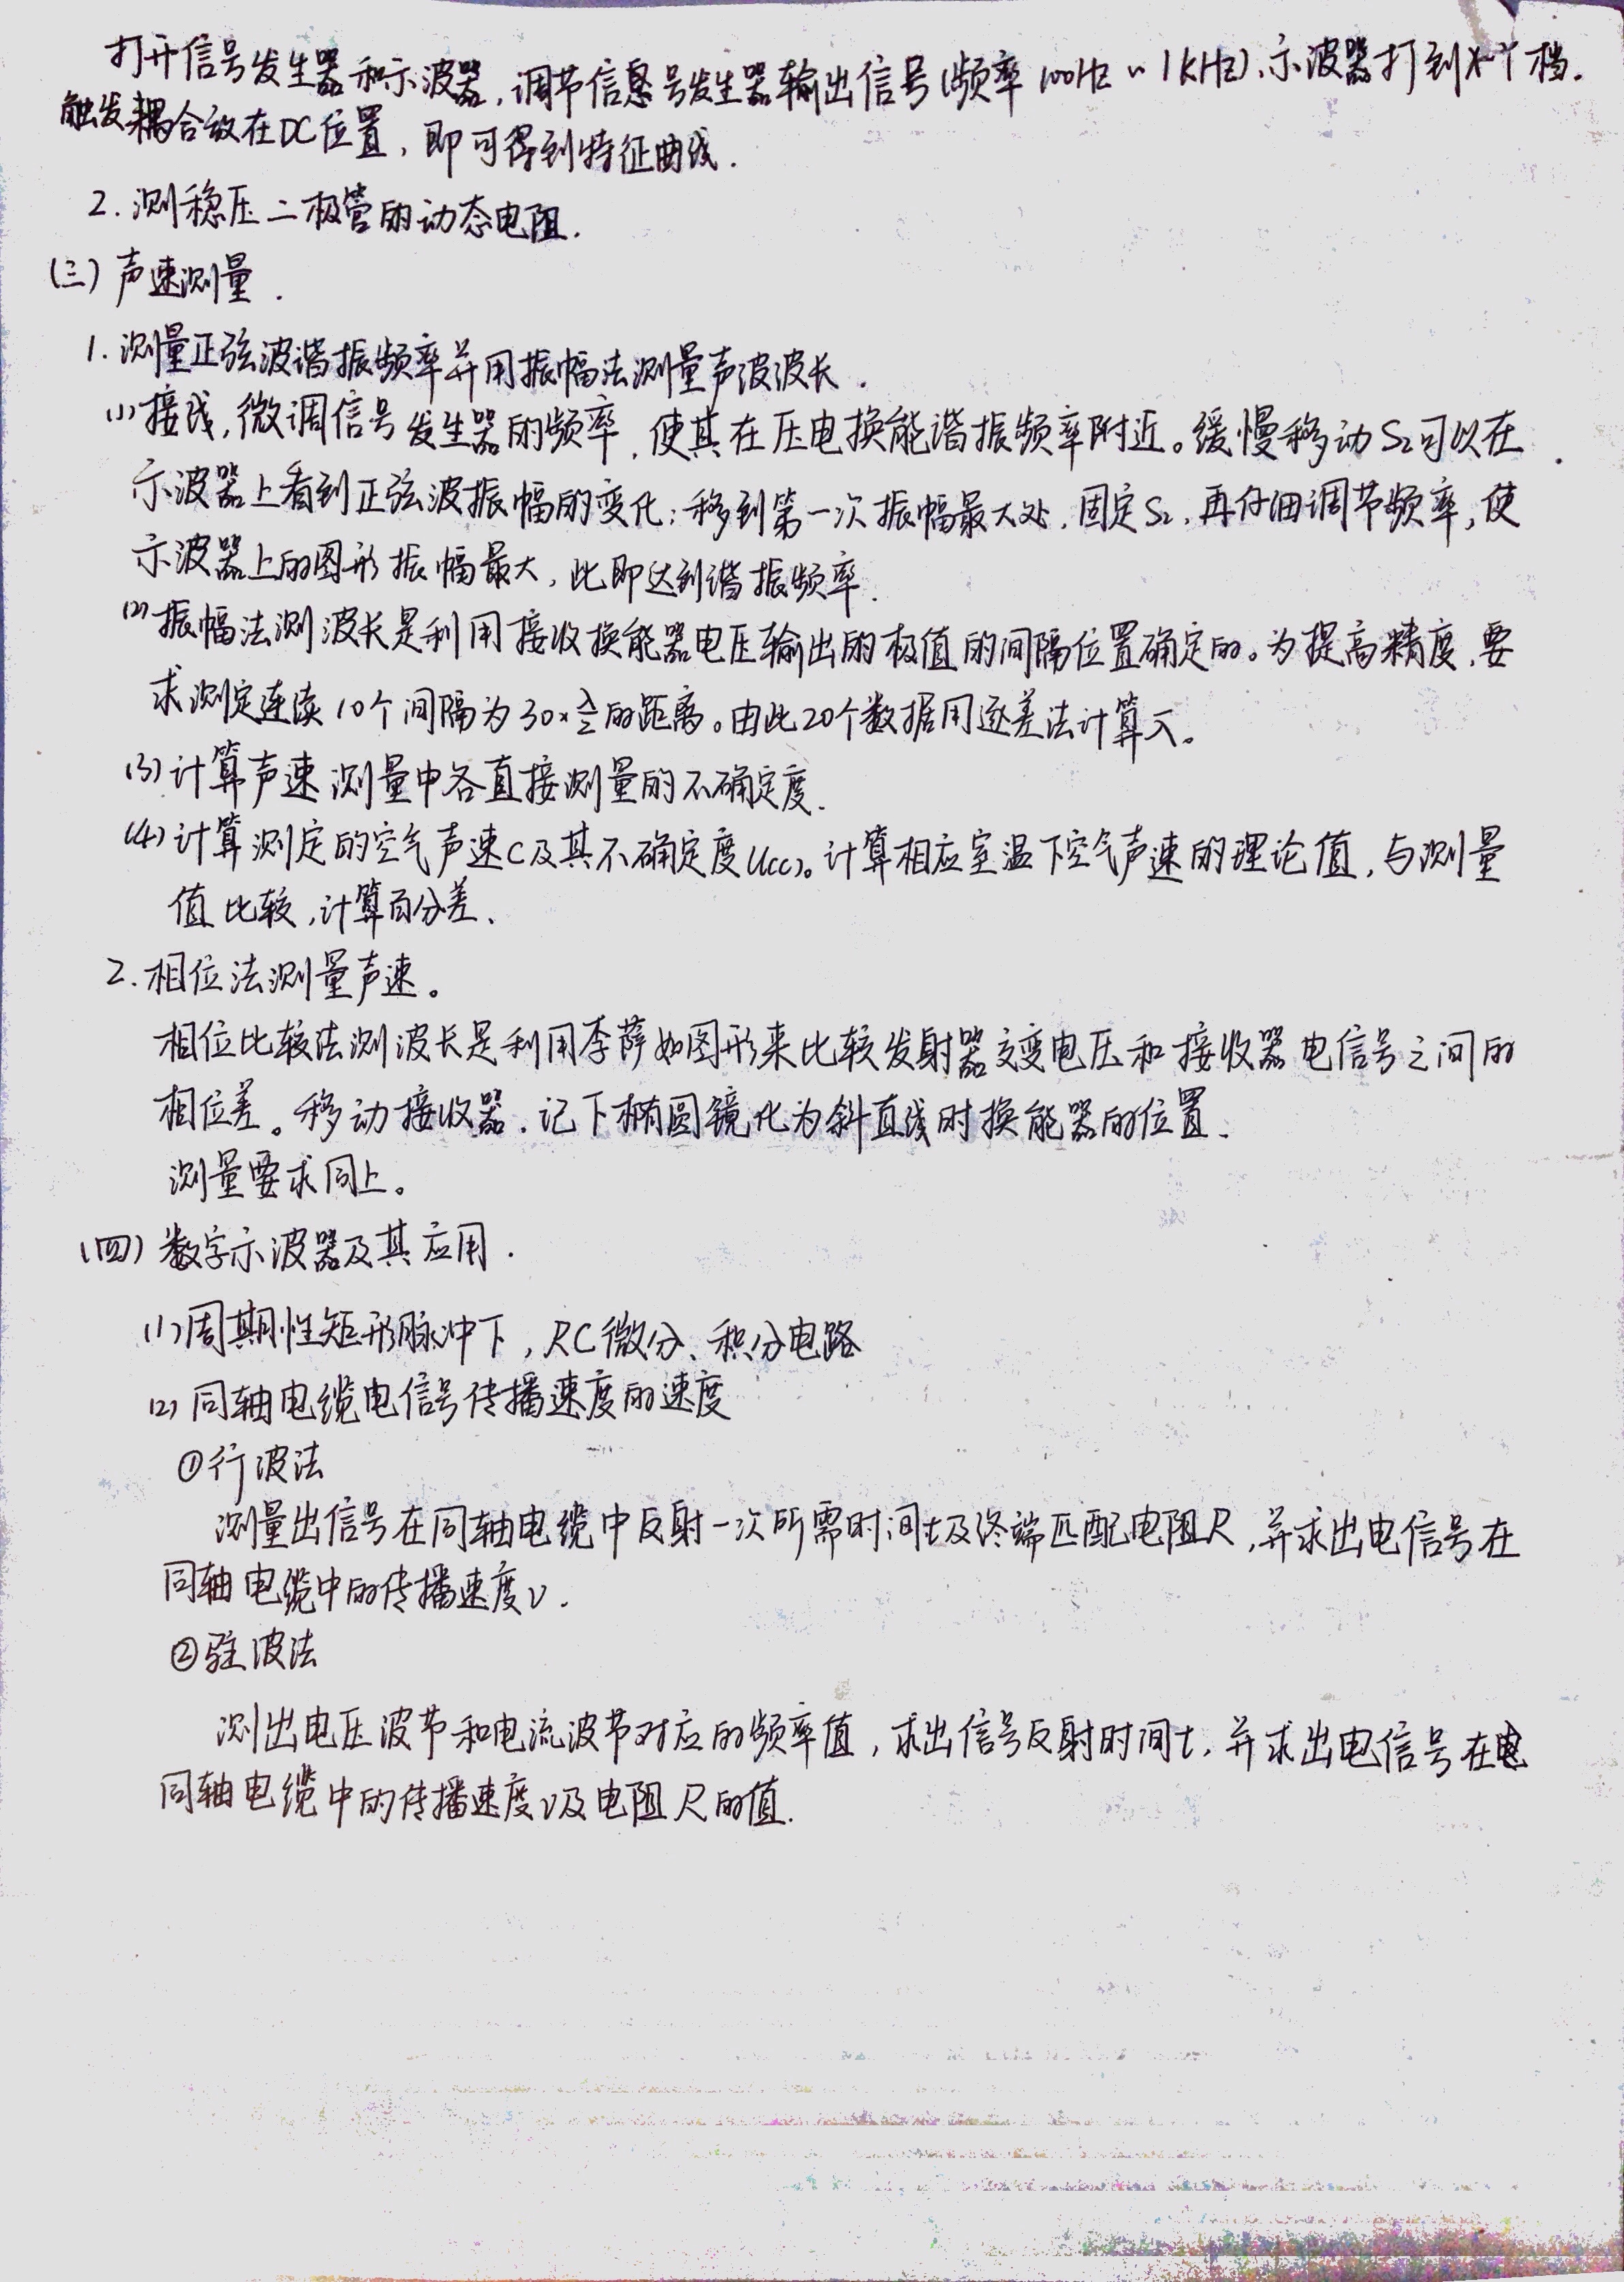 打开信号发生器和示波器,调节信息号发生器输出信号(频率100Hz~1KHz),示波器打到X-Y档.
触发耦合放在DC位置,即可得到特征曲线.
2.测稳压二极管的动态电阻.
(三)声速测量.
1.测量正弦波谐振频率并用振幅法测量声波波长.
(1)接线,微调信号发生器的频率,使其在压电换能谐振频率附近。缓慢移动S₂可以在
示波器上看到正弦波振幅的变化;移到第一次振幅最大处,固定S₂,再仔细调节频率,使
示波器上的图形振幅最大,此即达到谐振频率.
(2)振幅法测波长是利用接收换能器电压输出的极值的间隔位置确定的。为提高精度,要
求测定连续10个间隔为30×λ/2的距离。由此20个数据用逐差法计算λ。
(3)计算声速测量中各直接测量的不确定度.
(4)计算测定的空气声速C及其不确定度U(C)。计算相应室温下空气声速的理论值,与测量
值比较,计算百分差、
2.相位法测量声速。
相位比较法测波长是利用李萨如图形来比较发射器交变电压和接收器电信号之间的
相位差。移动接收器.记下椭圆镜化为斜直线时换能器的位置、
测量要求同上。
(四)数字示波器及其应用.
(1)周期性矩形脉冲下,RC微分、积分电路
(2)同轴电缆电信号传播速度的速度
①行波法
测量出信号在同轴电缆中反射一次所需时间t及终端匹配电阻R,并求出电信号在
同轴电缆中的传播速度v.
②驻波法
测出电压波节和电流波节对应的频率值,求出信号反射时间t,并求出电信号在
同轴电缆中的传播速度v及电阻R的值.